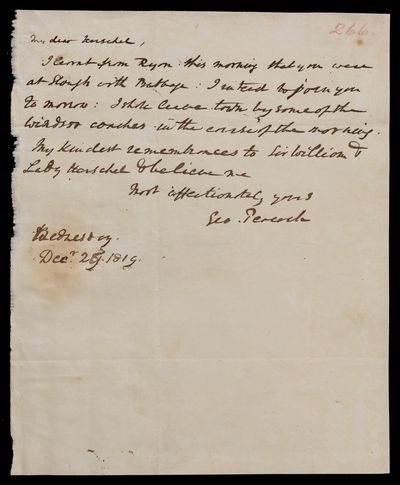 266
My dear Herschel,
I learnt from Ryan this morning that you were
at Slough with Babbage: I intend to join you
to morrow: I shall leave town by some of the
Windsor coaches in the course of the morning.
My kindest remembrances to Sir William &
Lady Herschel & believe me
Most affectionately yours
Geo. Peacock
Wednesday.
Decr. 29. 1819.